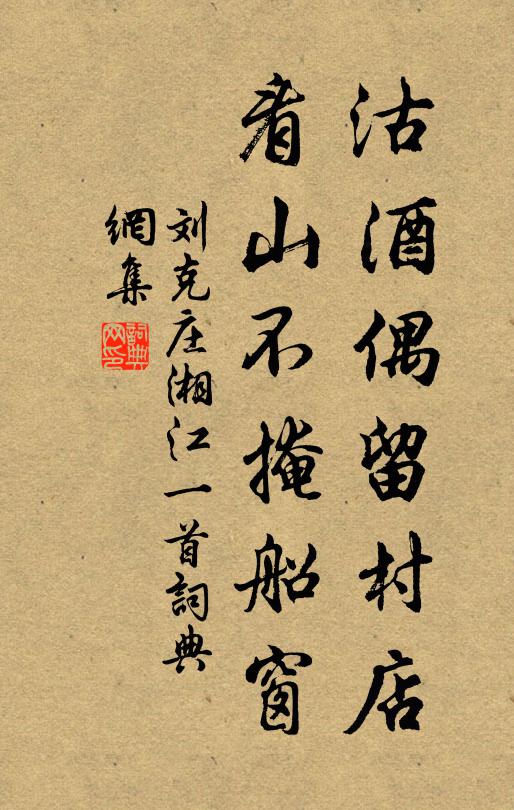 沽酒偶留村店
看山不掩船窗
刘克庄湘江一首詞典
網集
詞典网印